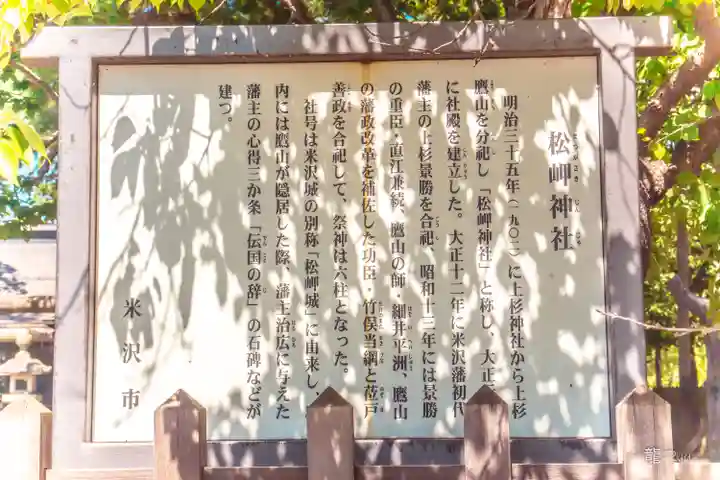 松岬神社
明治三十五年(一九〇二)に上杉神社から上杉
鷹山を分祀し「松岬神社」と称し、大正
に社殿を建立した。大正十二年に米沢藩初代
藩主の上杉景勝を合祀、昭和十三年には景勝
の重臣・直江兼続、鷹山の師・細井平洲、鷹山
の藩政改革を補佐した功臣・竹俣当綱と莅戸
善政を合祀して、祭神は六柱となった。
社号は米沢城の別称「松岬城」に由来し、
内には鷹山が隠居した際、藩主治広に与えた
藩主の心得三か条「伝国の辞」の石碑などが
建つ。
米沢市
龍